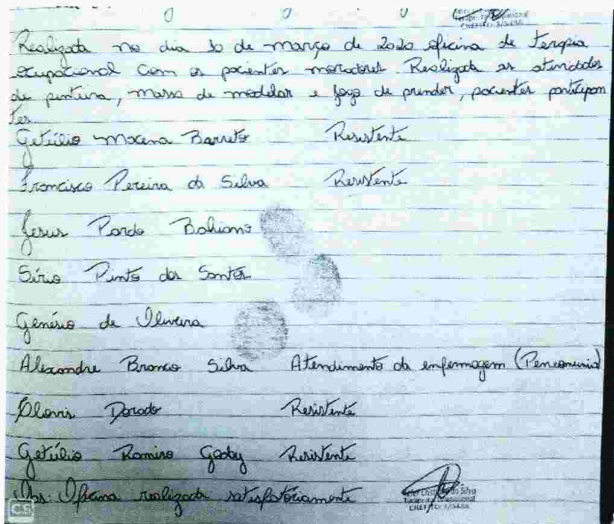 Realizada no dia 10 de março de 2020 oficina de Terapia
ocupacional com os pacientes moradores. Realizada as atividades
de pintura, massa de modelar e jogo de prender, pacientes participan
tes
Getúlio Macena Barreto Resistente
Francisco Pereira da Silva Resistente
Jesus Pardo Bahiano
Sírio Pinto dos Santos
Genésio de Oliveira
Alexandre Bronco Silva Atendimento da enfermagem
Clovis Dorado Resistente
Getúlio Ramiro Resistente
Obs: Oficina realizada satisfatoriamente
da Silva
Terapeuta Ocupacional
CS